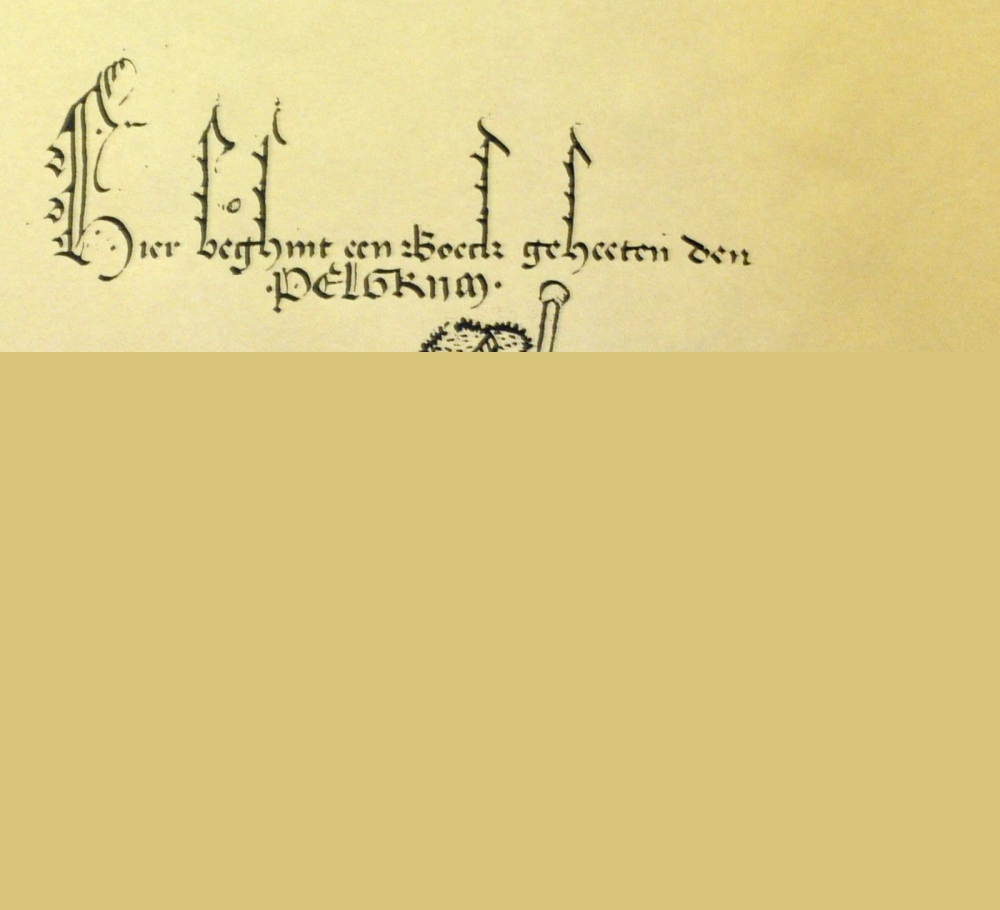 Hier beghint een Boeck geheeten den
·PELGRIIM·